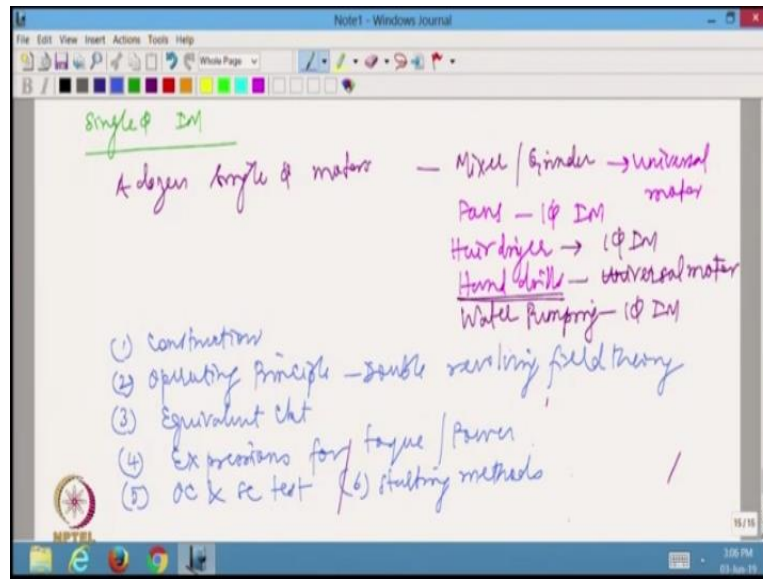 Note1 - Windows Journal
File Edit View Insert Actions Tools Help
Whole Page
B I
Single ϕ IM
A dozen single ϕ motors — Mixer / Grinder → universal motor
Fans — 1ϕ IM
Hair dryer → 1ϕ IM
Hand drills — universal motor
Water Pumping — 1ϕ IM
(1) Construction
(2) Operating Principle — Double revolving field theory
(3) Equivalent Ckt
(4) Expressions for torque / Power
(5) OC & SC test (6) Starting methods
NPTEL
15/15
3:06 PM
03-Jun-19